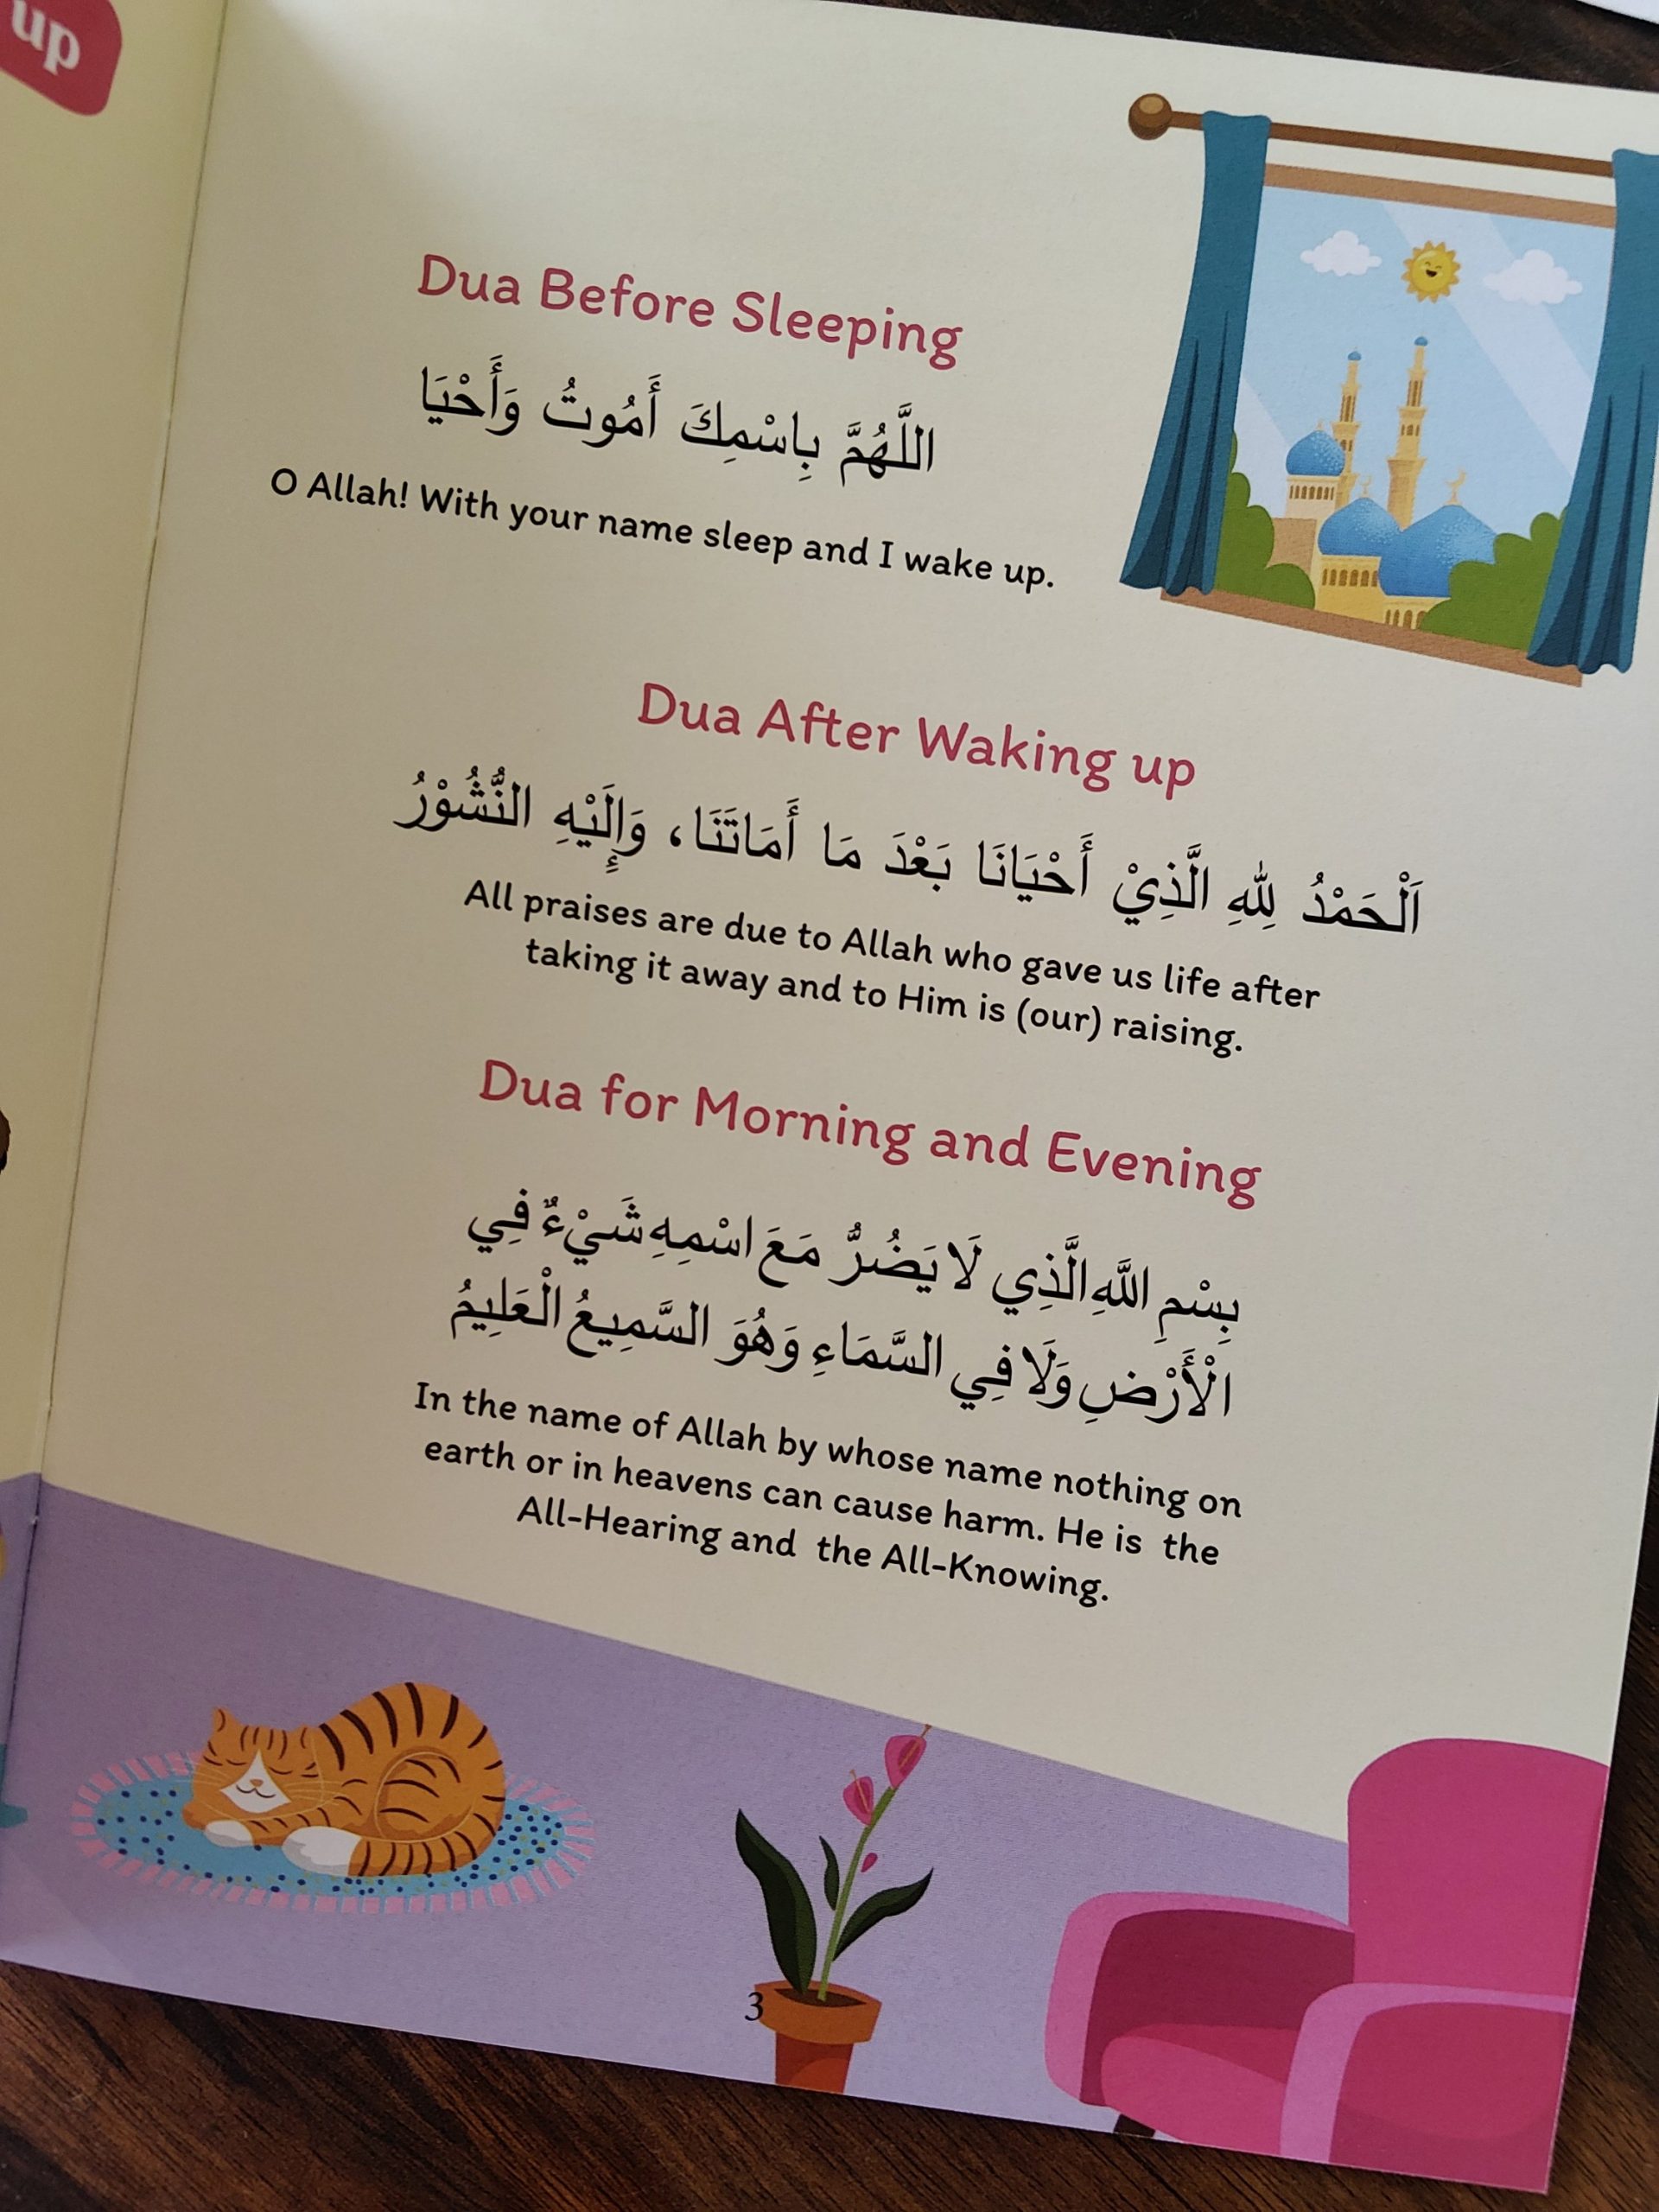 up
Dua Before Sleeping
اللَّهُمَّ بِاسْمِكَ أَمُوتُ وَأَحْيَا
O Allah! With your name sleep and I wake up.
Dua After Waking up
اَلْحَمْدُ لِلّٰهِ الَّذِيْ أَحْيَانَا بَعْدَ مَا أَمَاتَنَا، وَإِلَيْهِ النُّشُوْرُ
All praises are due to Allah who gave us life after
taking it away and to Him is (our) raising.
Dua for Morning and Evening
بِسْمِ اللَّهِ الَّذِي لَا يَضُرُّ مَعَ اسْمِهِ شَيْءٌ فِي
الْأَرْضِ وَلَا فِي السَّمَاءِ وَهُوَ السَّمِيعُ الْعَلِيمُ
In the name of Allah by whose name nothing on
earth or in heavens can cause harm. He is the
All-Hearing and the All-Knowing.
3